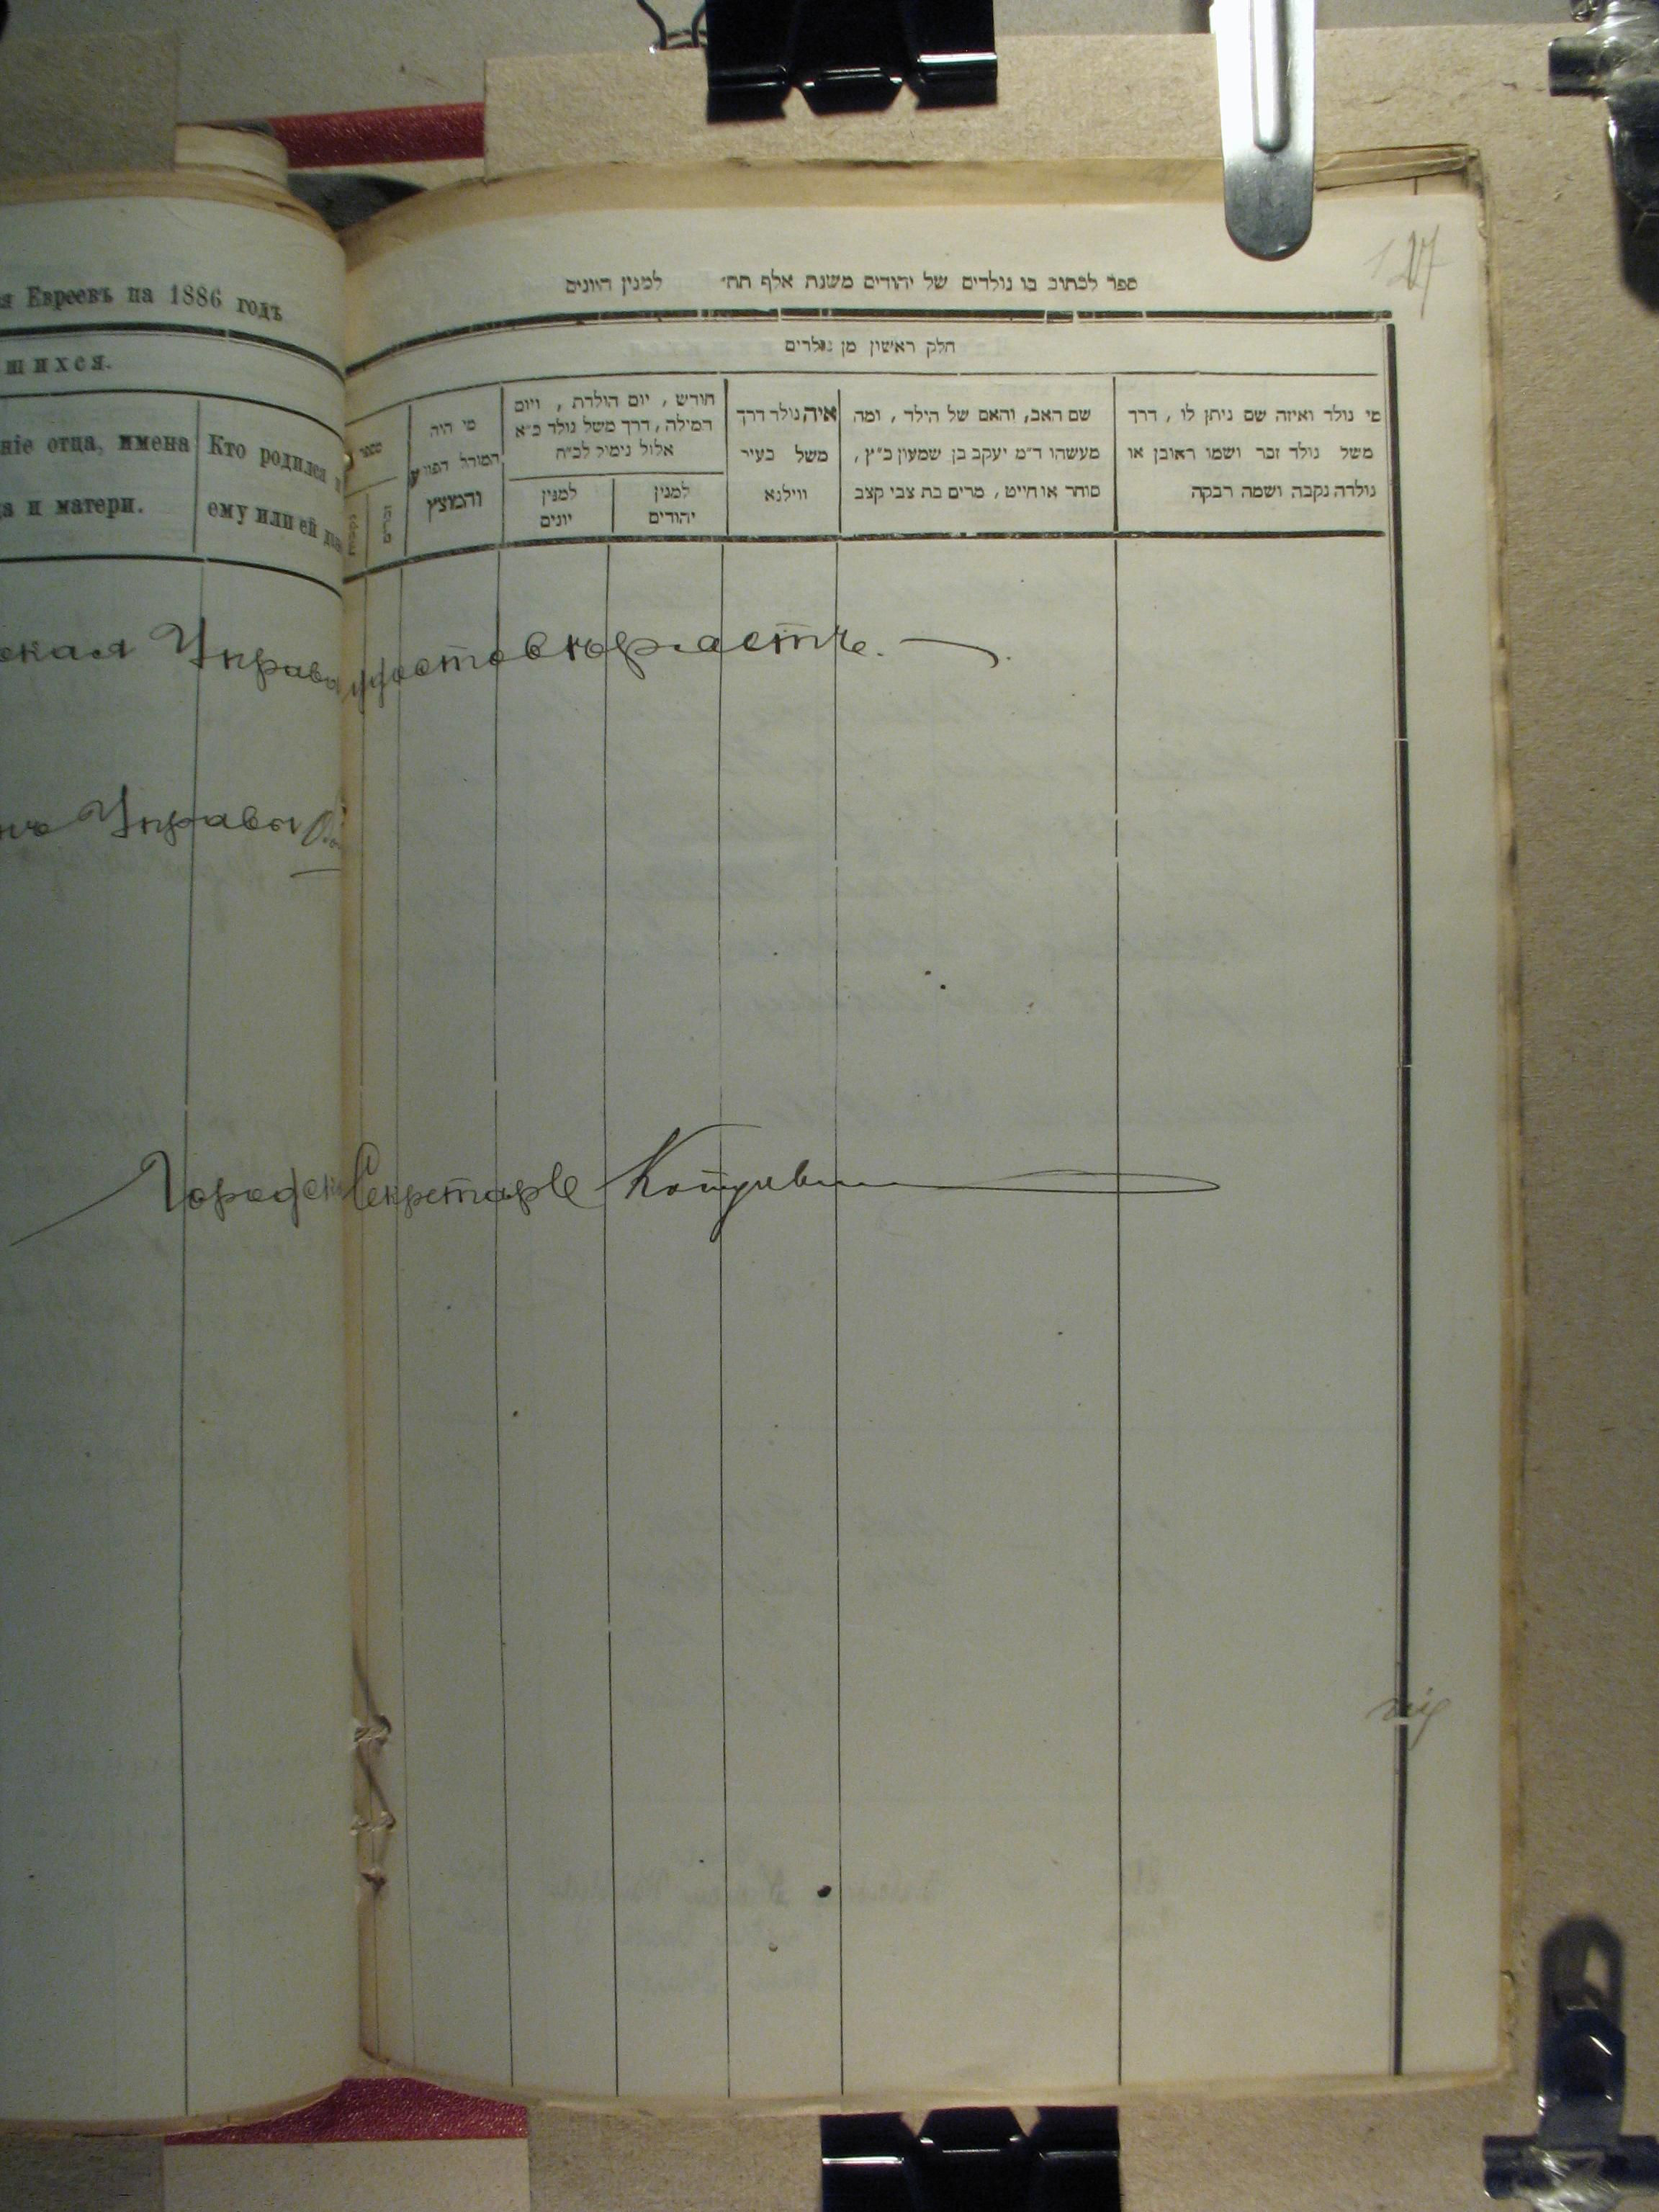 я Евреевъ на 1886 годъ
шихся.
ніе отца, имена
а и матери.
Кто родился и
ему или ей да
127
ספר לכתוב בו נולדים של יהודים משנת אלף תת״ למנין היונים
חלק ראשון מן נולדים
מי נולד ואיזה שם ניתן לו, דרך
משל נולד זכר ושמו ראובן או
נולדה נקבה ושמה רבקה
שם האב, והאם של הילד, ומה
מעשהו ד״מ יעקב בן שמעון כ״ץ,
סוחר או חייט, מרים בת צבי קצב
איה נולד דרך
משל בעיר
ווילנא
חודש, יום הולדת, ויום
המילה, דרך משל נולד כ״א
אלול נימול לכ״ח
למנין
יהודים
למנין
יונים
מי היה
המוהל הפורע
והמוצץ
מספר
זכרים
נקבות
ская Управа удостовѣряетъ.
нъ Управы
Городск Секретарь